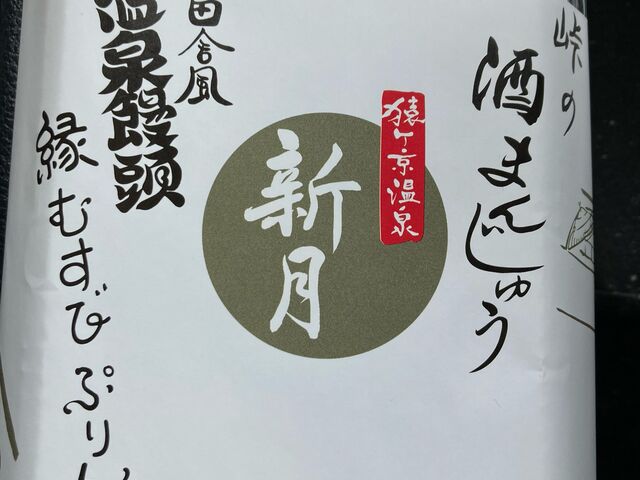 峠の
酒まんじゅう
猿ヶ京温泉
新月
田舎風
温泉饅頭
縁むすびぷりん